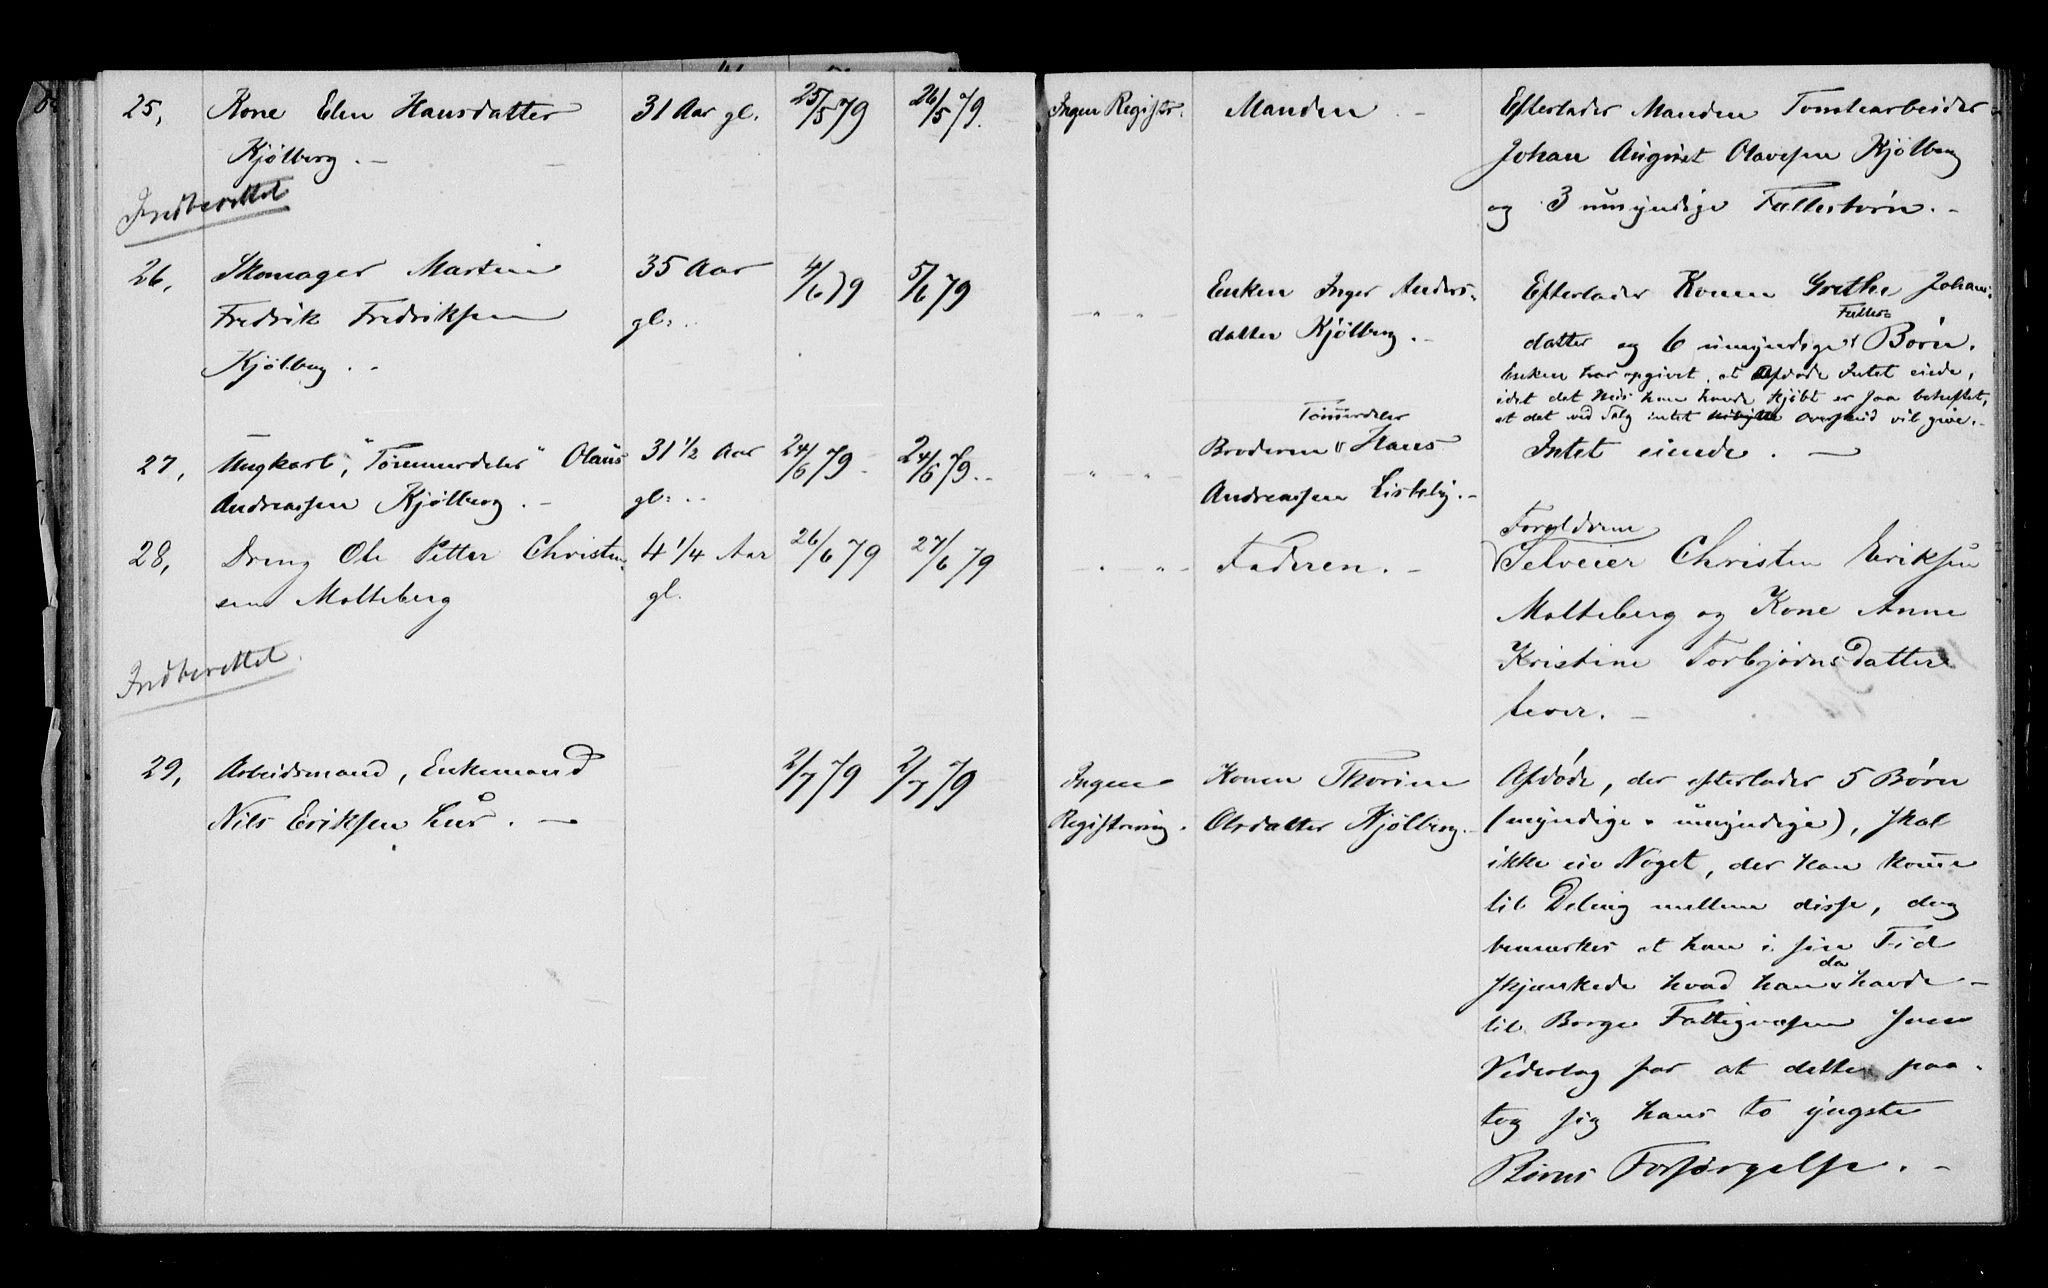 25, Kone Elen Hansdatter 31 Aar gl. 25/5 79 26/5 79. Ingen Registr. Manden. - Efterlader Manden Tomtearbeider
Kjølberg. - Johan August Olavesen Kjølberg
Indberettet og 3 umyndige Fællesbørn. -
26, Skomager Martin 35 Aar 4/6 79 5/6 79 " " Enken Inger Anders- Efterlader Konen Grethe Johans-
Fredrik Fredriksen gl. datter Kjølberg. - datter og 6 umyndige Fælles- Børn.
Kjølberg. - Enken har opgivet, at Afdøde Intet eiede,
idet det Huus han havde kjøbt er saa beheftet,
at det ved Salg intet Overskud vil give. -
27, Ungkarl, "Tømmerdeler" Olaus 31 1/2 Aar 24/6 79. 24/6 79. " " Broderen Tømmerdeler Hans Intet eiede. -
Andreassen Kjølberg. - gl. Andreassen Lisleby. -
28, Dreng Ole Petter Christen- 4 1/4 Aar 26/6 79 27/6 79 " " Faderen. - Forældrene
sen Molteberg gl. Selveier Christen Eriksen
Molteberg og Kone Anne
Indberettet. Kristine Torbjørnsdatter
lever. -
29, Arbeidsmand, Enkemand 2/7 79 2/7 79 Ingen Konen Thorine Afdøde, der efterlader 5 Børn
Nils Eriksen Lur. - Registrering. Olsdatter Kjølberg. - (myndige & umyndige), skal
ikke eie Noget, der kan komme
til Deling mellem disse, dog
bemærkes at han i sin Tid
skjænkede hvad han da havde -
til Borge Fattigvæsen som
Vederlag for at dette paa-
tog sig hans to yngste
Børns Forsørgelse. -